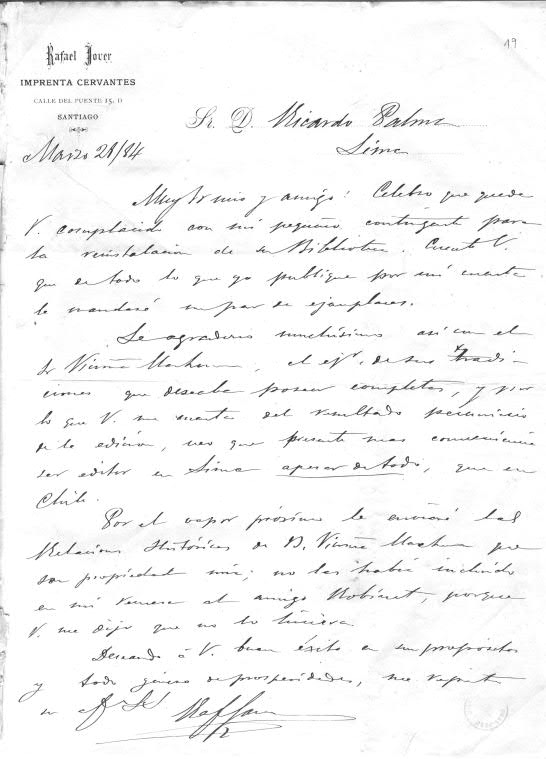 19
Rafael Jover
IMPRENTA CERVANTES
CALLE DEL PUENTE 15, D
SANTIAGO
Marzo 28/84
Sr. D. Ricardo Palma
Lima
Muy Sr mio y amigo: Celebro que quede
V. complacido con mi pequeño contingente para
la reinstalacion de su Biblioteca. Cuente V.
que de todo lo que yo publique por mi cuenta
le mandaré un par de ejemplares.
Le agradezco muchísimo así con el
Sr Vicuña Mackenna, el ejr. de sus tradi-
ciones que deseaba poseer completas, y por
lo que V. me cuenta del resultado pecuniario
de la edicion, veo que presenta mas conveniencia
ser editor en Lima apesar de todo, que en
Chile.
Por el vapor próximo le enviaré las
Relaciones Históricas de B. Vicuña Mackenna que
son propiedad mia; no las había incluido
en mi remesa al amigo Robinet, porque
V. me dijo que no lo hiciera.
Deseando á V. buen éxito en sus propósitos
y todo género de prosperidades, me repito
su af S S
Raf Jover